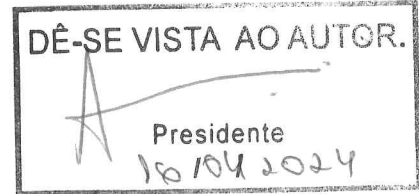 DÊ-SE VISTA AO AUTOR.
Presidente
16/04/2024